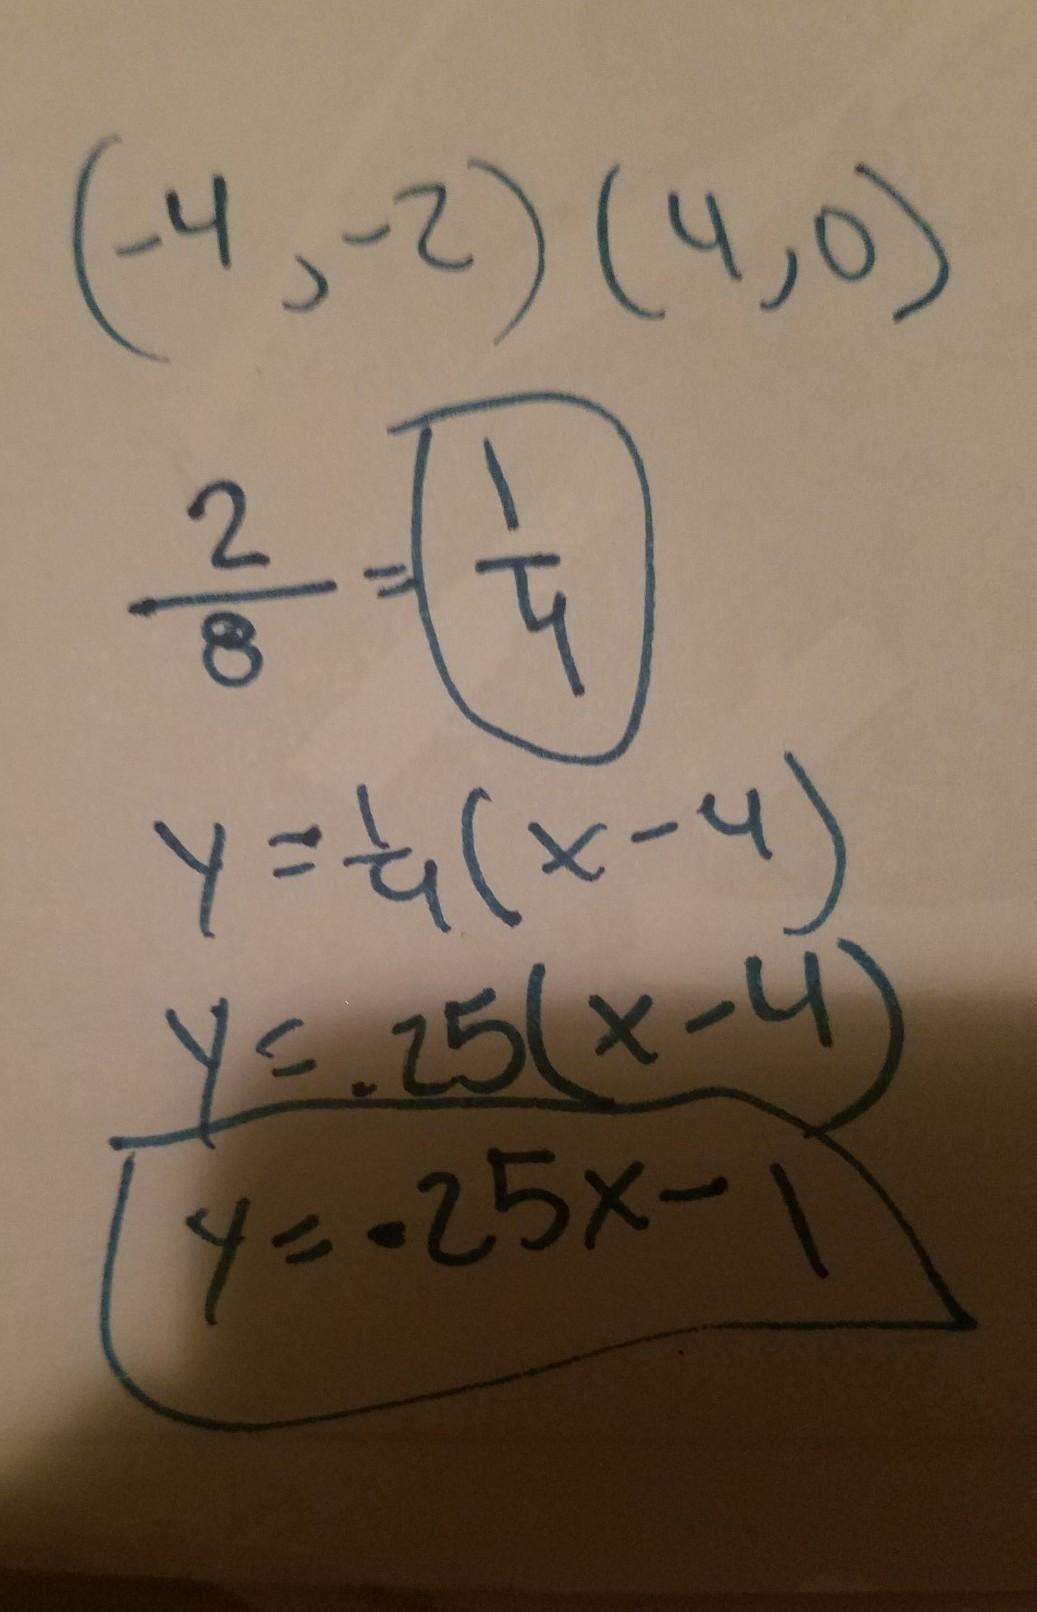 (-4, -2) (4, 0)
2/8 = 1/4
y = 1/4(x - 4)
y = .25(x - 4)
y = .25x - 1